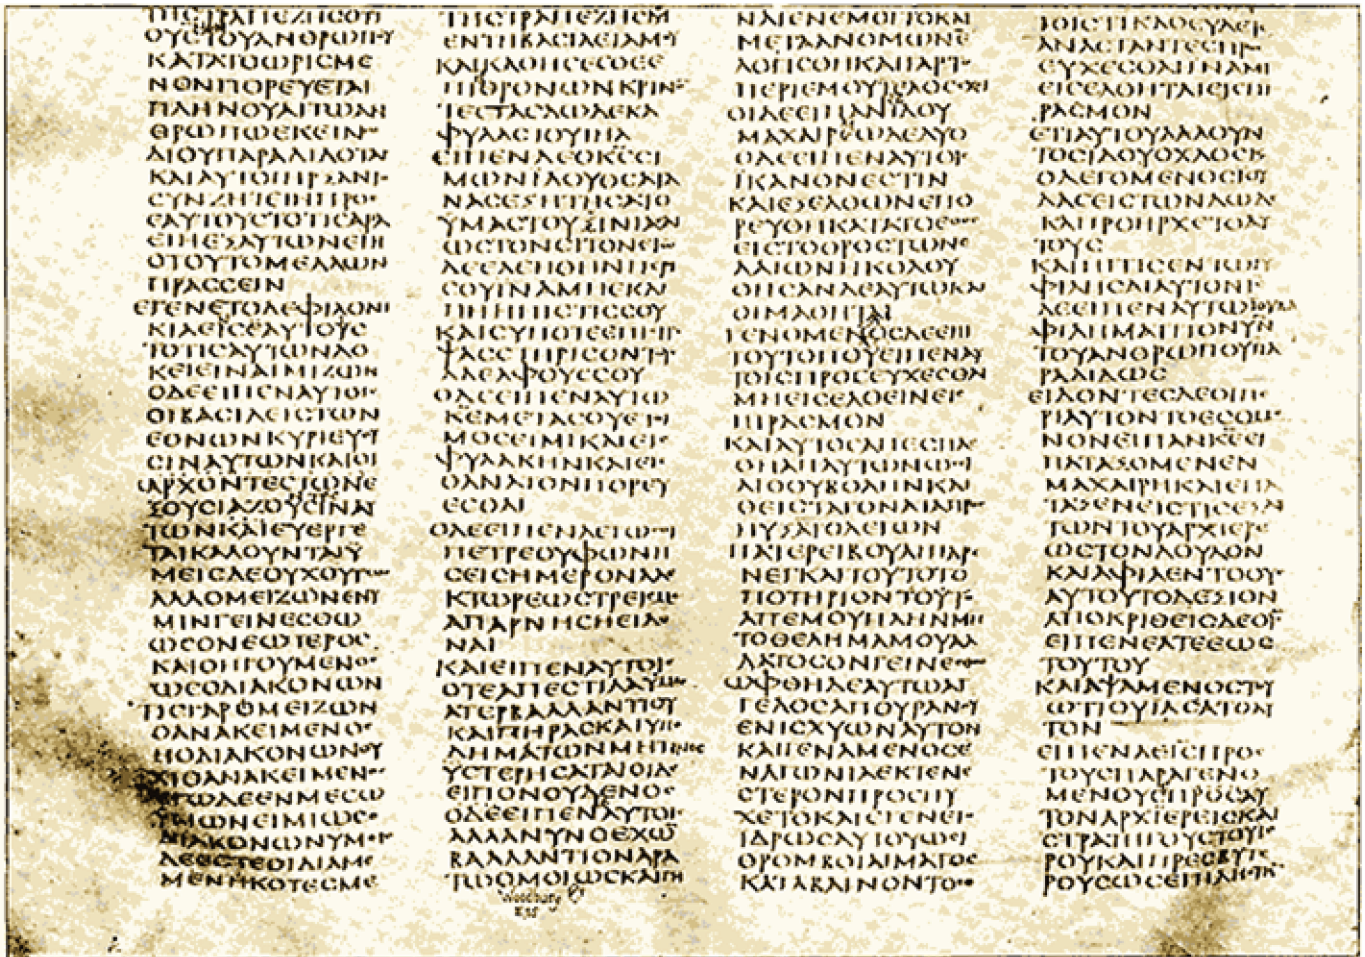 ΤΗΣ ΤΡΑΠΕΖΗΣ ΟΤΙ
ΟΥΣ ΤΟΥ ΑΝΘΡΩΠΟΥ
ΚΑΤΑ ΤΟ ΩΡΙΣΜΕ
ΝΟΝ ΠΟΡΕΥΕΤΑΙ
ΠΛΗΝ ΟΥΑΙ ΤΩ ΑΝ
ΘΡΩΠΩ ΕΚΕΙΝΩ
ΔΙ ΟΥ ΠΑΡΑΔΙΔΟΤΑΙ
ΚΑΙ ΑΥΤΟΙ ΗΡΞΑΝΤΟ
ΣΥΝΖΗΤΕΙΝ ΠΡΟΣ
ΕΑΥΤΟΥΣ ΤΟ ΤΙΣ ΑΡΑ
ΕΙΗ ΕΞ ΑΥΤΩΝ ΕΠΙ
Ο ΤΟΥΤΟ ΜΕΛΛΩΝ
ΠΡΑΣΣΕΙΝ
ΕΓΕΝΕΤΟ ΔΕ ΦΙΛΟΝΙ
ΚΙΑ ΕΙΣ ΕΑΥΤΟΥΣ
ΤΟ ΤΙΣ ΑΥΤΩΝ ΔΟ
ΚΕΙ ΕΙΝΑΙ ΜΙΖΩΝ
Ο ΔΕ ΕΙΠΕΝ ΑΥΤΟΙΣ
ΟΙ ΒΑΣΙΛΕΙΣ ΤΩΝ
ΕΘΝΩΝ ΚΥΡΙΕΥΟΥ
ΣΙΝ ΑΥΤΩΝ ΚΑΙ ΟΙ
ΑΡΧΟΝΤΕΣ ΤΩΝ Ε
ΞΟΥΣΙΑΖΟΥΣΙΝ ΑΥ
ΤΩΝ ΚΑΙ ΕΥΕΡΓΕ
ΤΑΙ ΚΑΛΟΥΝΤΑΙ Υ
ΜΕΙΣ ΔΕ ΟΥΧ ΟΥΤΩΣ
ΑΛΛ Ο ΜΕΙΖΩΝ ΕΝ Υ
ΜΙΝ ΓΕΙΝΕΣΘΩ
ΩΣ Ο ΝΕΩΤΕΡΟΣ
ΚΑΙ Ο ΗΓΟΥΜΕΝΟΣ
ΩΣ Ο ΔΙΑΚΟΝΩΝ
ΤΙΣ ΓΑΡ Ο ΜΕΙΖΩΝ
Ο ΑΝΑΚΕΙΜΕΝΟΣ
Η Ο ΔΙΑΚΟΝΩΝ ΟΥ
ΧΙ Ο ΑΝΑΚΕΙΜΕΝΟΣ
ΕΓΩ ΔΕ ΕΝ ΜΕΣΩ
ΥΜΩΝ ΕΙΜΙ ΩΣ Ο
ΔΙΑΚΟΝΩΝ ΥΜΕΙΣ
ΔΕ ΕΣΤΕ ΟΙ ΔΙΑΜΕ
ΜΕΝΗΚΟΤΕΣ ΜΕ
ΤΗΣ ΤΡΑΠΕΖΗΣ Μ
ΕΝ ΤΗ ΒΑΣΙΛΕΙΑ ΜΟΥ
ΚΑΙ ΚΑΘΗΣΕΣΘΕ Ε
ΠΙ ΘΡΟΝΩΝ ΚΡΙΝΟ
ΤΕΣ ΤΑΣ ΔΩΔΕΚΑ
ΦΥΛΑΣ ΤΟΥ ΙΗΛ
ΕΙΠΕΝ ΔΕ Ο ΚΣ ΣΙ
ΜΩΝ ΙΔΟΥ Ο ΣΑΤΑ
ΝΑΣ ΕΞΗΤΗΣΑΤΟ
ΥΜΑΣ ΤΟΥ ΣΙΝΙΑΣΑΙ
ΩΣ ΤΟΝ ΣΙΤΟΝ ΕΓΩ
ΔΕ ΕΔΕΗΘΗΝ ΠΕΡΙ
ΣΟΥ ΙΝΑ ΜΗ ΕΚΛΙ
ΠΗ Η ΠΙΣΤΙΣ ΣΟΥ
ΚΑΙ ΣΥ ΠΟΤΕ ΕΠΙΣΤΡΕ
ΨΑΣ ΣΤΗΡΙΣΟΝ ΤΟΥΣ
ΑΔΕΛΦΟΥΣ ΣΟΥ
Ο ΔΕ ΕΙΠΕΝ ΑΥΤΩ
ΚΕ ΜΕΤΑ ΣΟΥ ΕΤΟΙ
ΜΟΣ ΕΙΜΙ ΚΑΙ ΕΙΣ
ΦΥΛΑΚΗΝ ΚΑΙ ΕΙΣ
ΘΑΝΑΤΟΝ ΠΟΡΕΥ
ΕΣΘΑΙ
Ο ΔΕ ΕΙΠΕΝ ΛΕΓΩ ΣΟΙ
ΠΕΤΡΕ ΟΥ ΦΩΝΗ
ΣΕΙ ΣΗΜΕΡΟΝ ΑΛΕ
ΚΤΩΡ ΕΩΣ ΤΡΕΙΣ ΜΕ
ΑΠΑΡΝΗΣΗ ΕΙΔΕ
ΝΑΙ
ΚΑΙ ΕΙΠΕΝ ΑΥΤΟΙΣ
ΟΤΕ ΑΠΕΣΤΙΛΑ ΥΜΑΣ
ΑΤΕΡ ΒΑΛΛΑΝΤΙΟΥ
ΚΑΙ ΠΗΡΑΣ ΚΑΙ ΥΠΟ
ΔΗΜΑΤΩΝ ΜΗ ΤΙΝΟΣ
ΥΣΤΕΡΗΣΑΤΑΙ ΟΙ ΔΕ
ΕΙΠΟΝ ΟΥΔΕΝΟΣ
Ο ΔΕ ΕΙΠΕΝ ΑΥΤΟΙΣ
ΑΛΛΑ ΝΥΝ Ο ΕΧΩ
ΒΑΛΛΑΝΤΙΟΝ ΑΡΑ
ΤΩ ΟΜΟΙΩΣ ΚΑΙ ΠΗ
Woodbury
ΝΑΙ ΕΝ ΕΜΟΙ ΤΟ ΚΑΙ
ΜΕΤΑ ΑΝΟΜΩΝ Ε
ΛΟΓΙΣΘΗ ΚΑΙ ΓΑΡ ΤΟ
ΠΕΡΙ ΕΜΟΥ ΤΕΛΟΣ ΕΧΙ
ΟΙ ΔΕ ΕΙΠΑΝ ΙΔΟΥ
ΜΑΧΑΙΡΕ ΩΔΕ ΔΥΟ
Ο ΔΕ ΕΙΠΕΝ ΑΥΤΟΙΣ
ΙΚΑΝΟΝ ΕΣΤΙΝ
ΚΑΙ ΕΞΕΛΘΩΝ ΕΠΟ
ΡΕΥΘΗ ΚΑΤΑ ΤΟ ΕΘΟΣ
ΕΙΣ ΤΟ ΟΡΟΣ ΤΩΝ Ε
ΛΑΙΩΝ ΗΚΟΛΟΥ
ΘΗΣΑΝ ΔΕ ΑΥΤΩ ΚΑΙ
ΟΙ ΜΑΘΗΤΑΙ
ΓΕΝΟΜΕΝΟΣ ΔΕ ΕΠΙ
ΤΟΥ ΤΟΠΟΥ ΕΙΠΕΝ ΑΥ
ΤΟΙΣ ΠΡΟΣΕΥΧΕΣΘΑΙ
ΜΗ ΕΙΣΕΛΘΕΙΝ ΕΙΣ
ΠΙΡΑΣΜΟΝ
ΚΑΙ ΑΥΤΟΣ ΑΠΕΣΠΑ
ΘΗ ΑΠ ΑΥΤΩΝ ΩΣΙ
ΛΙΘΟΥ ΒΟΛΗΝ ΚΑΙ
ΘΕΙΣ ΤΑ ΓΟΝΑΤΑ ΠΡΟ
ΗΥΞΑΤΟ ΛΕΓΩΝ
ΠΑΤΕΡ ΕΙ ΒΟΥΛΕΙ ΠΑΡΕ
ΝΕΓΚΑΙ ΤΟΥΤΟ ΤΟ
ΠΟΤΗΡΙΟΝ ΤΟΥΤΟ
ΑΠ ΕΜΟΥ ΠΛΗΝ ΜΗ
ΤΟ ΘΕΛΗΜΑ ΜΟΥ ΑΛ
ΛΑ ΤΟ ΣΟΝ ΓΕΙΝΕΣΘΩ
ΩΦΘΗ ΔΕ ΑΥΤΩ ΑΓ
ΓΕΛΟΣ ΑΠ ΟΥΡΑΝΟΥ
ΕΝΙΣΧΥΩΝ ΑΥΤΟΝ
ΚΑΙ ΓΕΝΑΜΕΝΟΣ Ε
Ν ΑΓΩΝΙΑ ΕΚΤΕΝΕ
ΣΤΕΡΟΝ ΠΡΟΣΗΥ
ΧΕΤΟ ΚΑΙ ΕΓΕΝΕΤΟ
Ο ΙΔΡΩΣ ΑΥΤΟΥ ΩΣΙ
ΘΡΟΜΒΟΙ ΑΙΜΑΤΟΣ
ΚΑΤΑΒΑΙΝΟΝΤΟΣ
ΤΟΙΣ ΤΙ ΚΑΘΕΥΔΕΤΕ
ΑΝΑΣΤΑΝΤΕΣ ΠΡΟΣ
ΕΥΧΕΣΘΑΙ ΙΝΑ ΜΗ
ΕΙΣΕΛΘΗΤΑΙ ΕΙΣ ΠΙ
ΡΑΣΜΟΝ
ΕΤΙ ΑΥΤΟΥ ΛΑΛΟΥΝ
ΤΟΣ ΙΔΟΥ ΟΧΛΟΣ Κ
Ο ΛΕΓΟΜΕΝΟΣ ΙΟΥ
ΔΑΣ ΕΙΣ ΤΩΝ ΔΩΔΕ
ΚΑ ΠΡΟΗΡΧΕΤΟ ΑΥ
ΤΟΥΣ
ΚΑΙ ΗΓΓΙΣΕΝ ΤΩ ΙΥ
ΦΙΛΗΣΑΙ ΑΥΤΟΝ ΙΣ
ΔΕ ΕΙΠΕΝ ΑΥΤΩ ΙΟΥΔΑ
ΦΙΛΗΜΑΤΙ ΤΟΝ ΥΝ
ΤΟΥ ΑΝΘΡΩΠΟΥ ΠΑ
ΡΑΔΙΔΩΣ
ΕΙΔΟΝΤΕΣ ΔΕ ΟΙ ΠΕ
ΡΙ ΑΥΤΟΝ ΤΟ ΕΣΟΜΕ
ΝΟΝ ΕΙΠΑΝ ΚΕ ΕΙ
ΠΑΤΑΞΟΜΕΝ ΕΝ
ΜΑΧΑΙΡΗ ΚΑΙ ΕΠΑ
ΤΑΞΕΝ ΕΙΣ ΤΙΣ ΕΞ ΑΥ
ΤΩΝ ΤΟΥ ΑΡΧΙΕΡΕ
ΩΣ ΤΟΝ ΔΟΥΛΟΝ
ΚΑΙ ΑΦΙΛΕΝ ΤΟ ΟΥΣ
ΑΥΤΟΥ ΤΟ ΔΕΞΙΟΝ
ΑΠΟΚΡΙΘΕΙΣ ΔΕ Ο ΙΣ
ΕΙΠΕΝ ΕΑΤΕ ΕΩΣ
ΤΟΥΤΟΥ
ΚΑΙ ΑΨΑΜΕΝΟΣ ΤΟΥ
ΩΤΙΟΥ ΙΑΣΑΤΟ ΑΥ
ΤΟΝ
ΕΙΠΕΝ ΔΕ ΙΣ ΠΡΟΣ
ΤΟΥΣ ΠΑΡΑΓΕΝΟ
ΜΕΝΟΥΣ ΠΡΟΣ ΑΥ
ΤΟΝ ΑΡΧΙΕΡΕΙΣ ΚΑΙ
ΣΤΡΑΤΗΓΟΥΣ ΤΟΥ ΙΕ
ΡΟΥ ΚΑΙ ΠΡΕΣΒΥΤΕ
ΡΟΥΣ ΩΣ ΕΠΙ ΛΗΣΤΗ